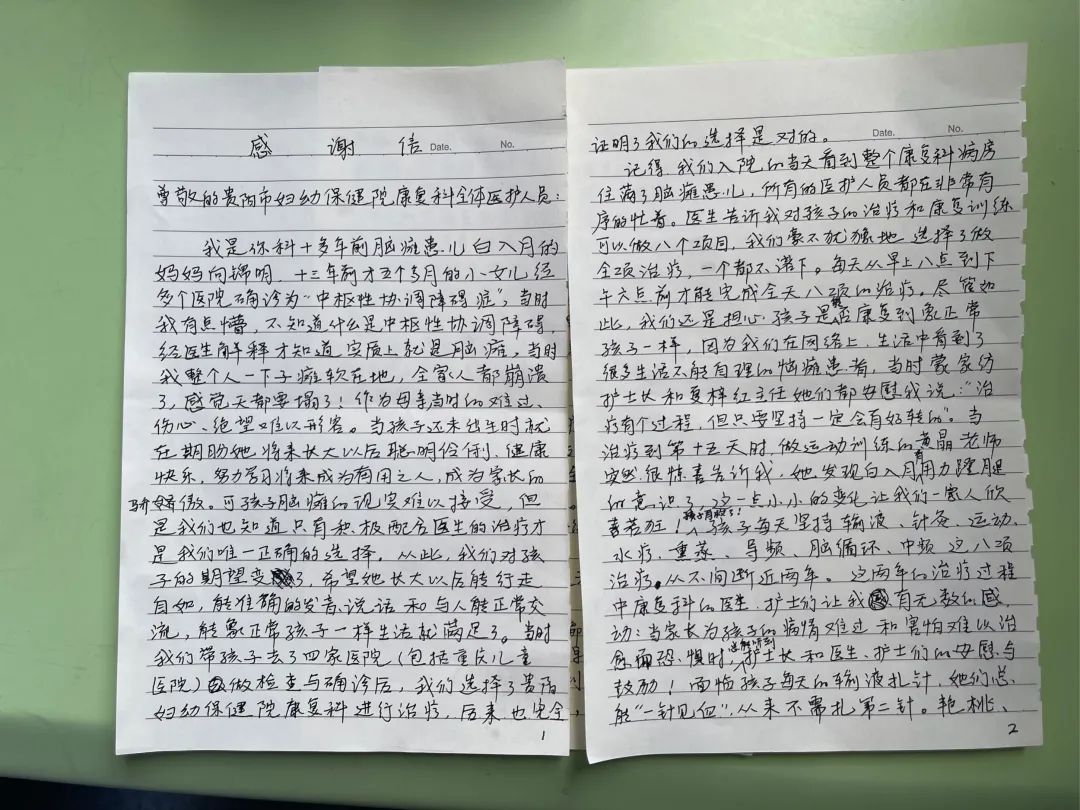 感 谢 信 Date. No.
尊敬的贵阳市妇幼保健院康复科全体医护人员:
我是你科十多年前脑瘫患儿白入月的
妈妈向锦明,十三年前才五个多月的小女儿经
多个医院确诊为“中枢性协调障碍症”,当时
我有点懵,不知道什么是中枢性协调障碍,
经医生解释才知道,实质上就是脑瘫,当时
我整个人一下子瘫软在地,全家人都崩溃
了,感觉天都要塌了!作为母亲当时的难过、
伤心、绝望难以形容。当孩子还未出生时就
在期盼她将来长大以后聪明伶俐、健康
快乐,努力学习将来成为有用之人,成为家长的
骄傲。可孩子脑瘫的现实难以接受,但
是我们也知道只有积极配合医生的治疗才
是我们唯一正确的选择。从此,我们对孩
子的期望变了,希望她长大以后能行走
自如,能准确的发音、说话和与人能正常交
流,能象正常孩子一样生活就满足了。当时
我们带孩子去了四家医院(包括重庆儿童
医院)做检查与确诊后,我们选择了贵阳
妇幼保健院康复科进行治疗,后来也完全,
1
证明了我们的选择是对的。 Date. No.
记得,我们入院的当天看到整个康复科病房
住满了脑瘫患儿,所有的医护人员都在非常有
序的忙着。医生告诉我对孩子的治疗和康复训练
可以做八个项目,我们毫不犹豫地选择了做
全项治疗,一个都不落下。每天从早上八点到下
午六点前才能完成全天八项的治疗。尽管如
此,我们还是担心孩子是否能康复到象正常
孩子一样,因为我们在网络上、生活中看到了
很多生活不能自理的脑瘫患者,当时蒙家纺
护士长和夏梓红主任她们都安慰我说:“治
疗有个过程,但只要坚持一定会有好转的”。当
治疗到第十五天时,做运动训练的黄晶老师
突然很惊喜告诉我,她发现白入月有用力蹬腿
的意识了,这一点小小的变化让我们一家人欣
喜若狂!孩子有救了!孩子每天坚持输液、针灸、运动、
水疗、熏蒸、导频、脑循环、中频这八项
治疗,从不间断近两年。这两年的治疗过程
中康复科的医生、护士们让我有无数的感
动:当家长为孩子的病情难过和害怕难以治
愈而恐惧时,护士长和医生、护士们的安慰与
鼓励!面临孩子每天的输液扎针,她们总
能“一针见血”,从来不需扎第二针。艳桃、
2